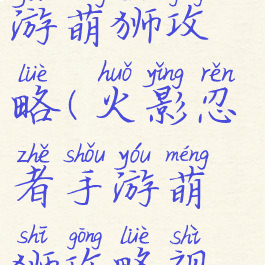 游萌狮攻
lüè huǒ yǐng rěn
略(火影忍
zhě shǒu yóu méng
者手游萌
shī gōng lüè shì
狮攻略视